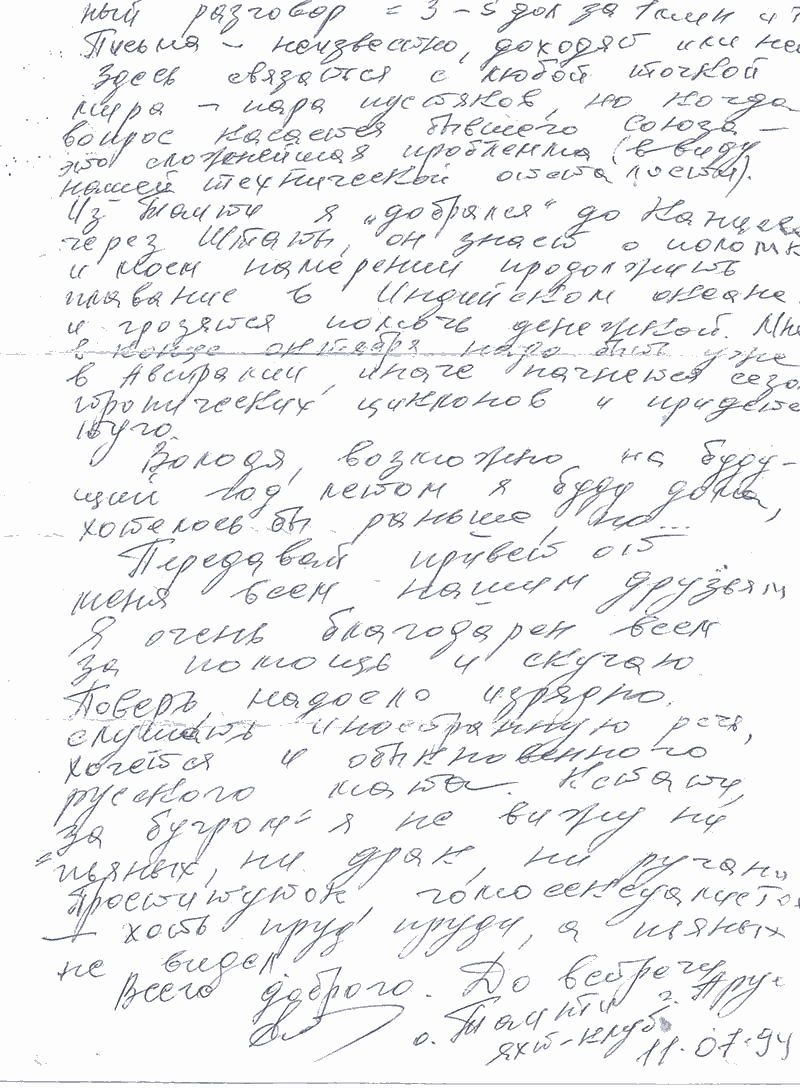 ный разговор = 3-5 дол за 1 мин и т
Письма - неизвестно, доходят или нет
Здесь связатся с любой точкой
мира - пара пустяков, но когда
вопрос касается бывшего союза -
это сложнейшая проблема (ввиду
нашей технической отсталости).
Из Таити я „добрался" до
через Штаты, он знает о поломк
и моем намерении продолжить
плавание в Индийском океане
и грозятся помочь денежкой. Мне
в конце октября надо быть уже
в Австралии, иначе начнется сезо
тропических циклонов и придется
туго.
Володя, возможно на буду-
щий год летом я буду дома,
хотелось бы раньше, но...
Передавай привет от
меня всем нашим друзьям
Я очень благодарен всем
за помощь и скучаю
Поверь надоело изрядно
слушать иностранную речь,
хочется и обыкновенного
русского мата. Кстати,
за бугром" я не вижу ни
пьяных, ни драк, ни ругани
Проституток, гомосексуалистов
- хоть пруд пруди, а пьяных
не видел
Всего доброго. До встречи
о. Таити г.
яхт-клуб
11.07.94